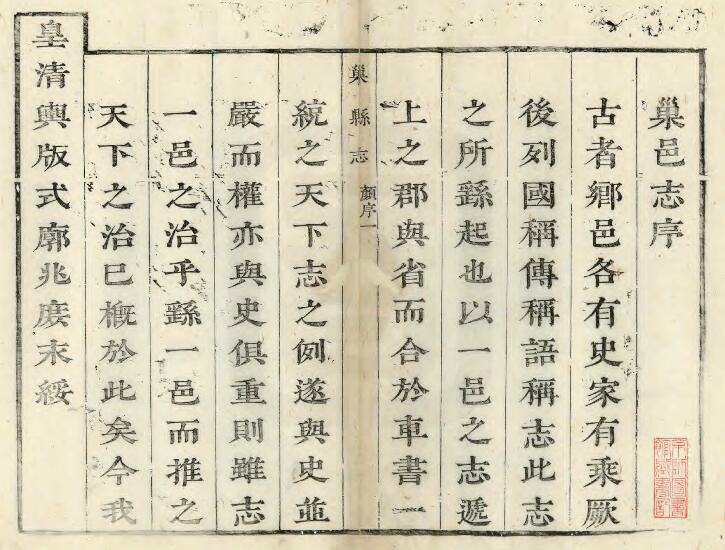 巢邑志序
古者鄉邑各有史家有乘厥
後列國稱傳稱語稱志此志
之所繇起也以一邑之志遞
上之郡與省而合於車書一
巢縣志 顏序一
統之天下志之例遂與史並
嚴而權亦與史俱重則雖志
一邑之治乎繇一邑而推之
天下之治已概於此矣今我
皇清輿版式廓兆庶末綏